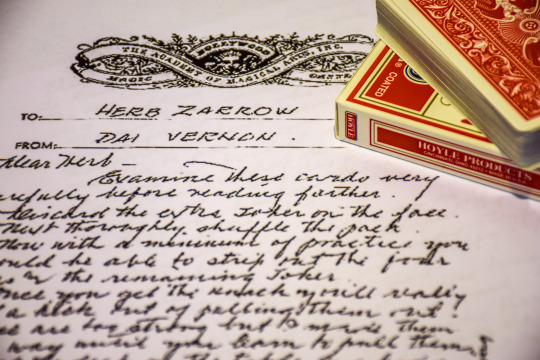 HOLLYWOOD
THE ACADEMY OF MAGICAL ARTS, INC.
MAGIC CASTLE
TO: HERB ZARROW
FROM: DAI VERNON.
Dear Herb -
Examine these cards very
carefully before reading farther.
Discard the extra Joker on the face.
Next thoroughly shuffle the pack.
Now with a minimum of practice you
should be able to strip out the four
the remaining Joker.
Once you get the knack you will really
a kick out of pulling them out.
are too strong but I made them
way until you learn to pull them
COATED
HOYLE
HOYLE PRODUCTS